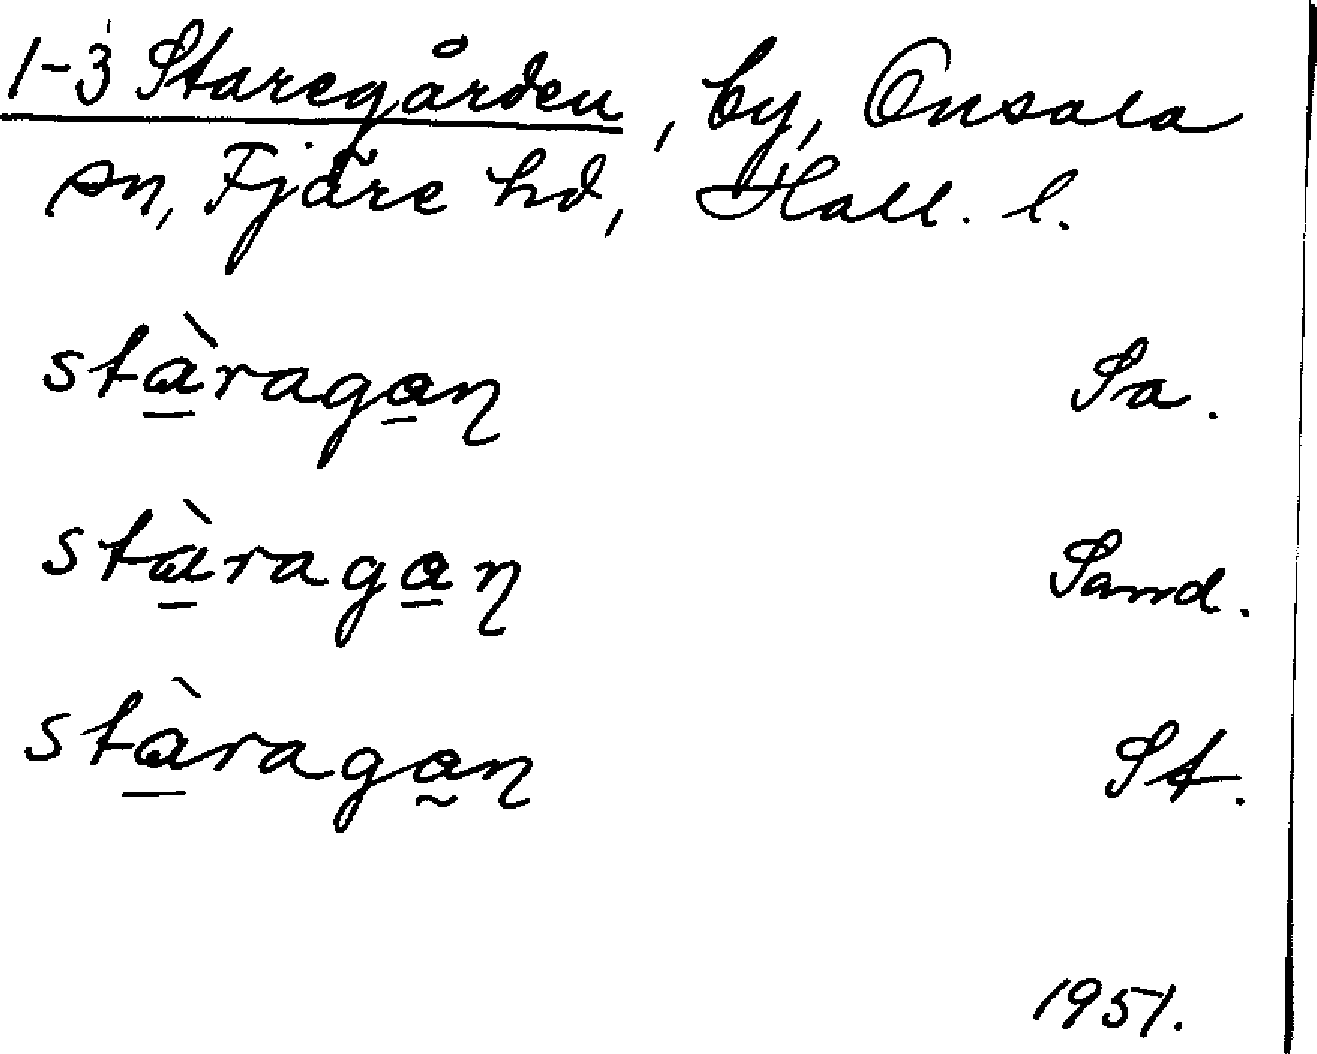 1-3 Staregården, by, Onsala
sn, Fjäre hd, Hall. l.
stàragan̡ Sa.
stàragan̡ Sand.
stàragan̡ St.
1951.